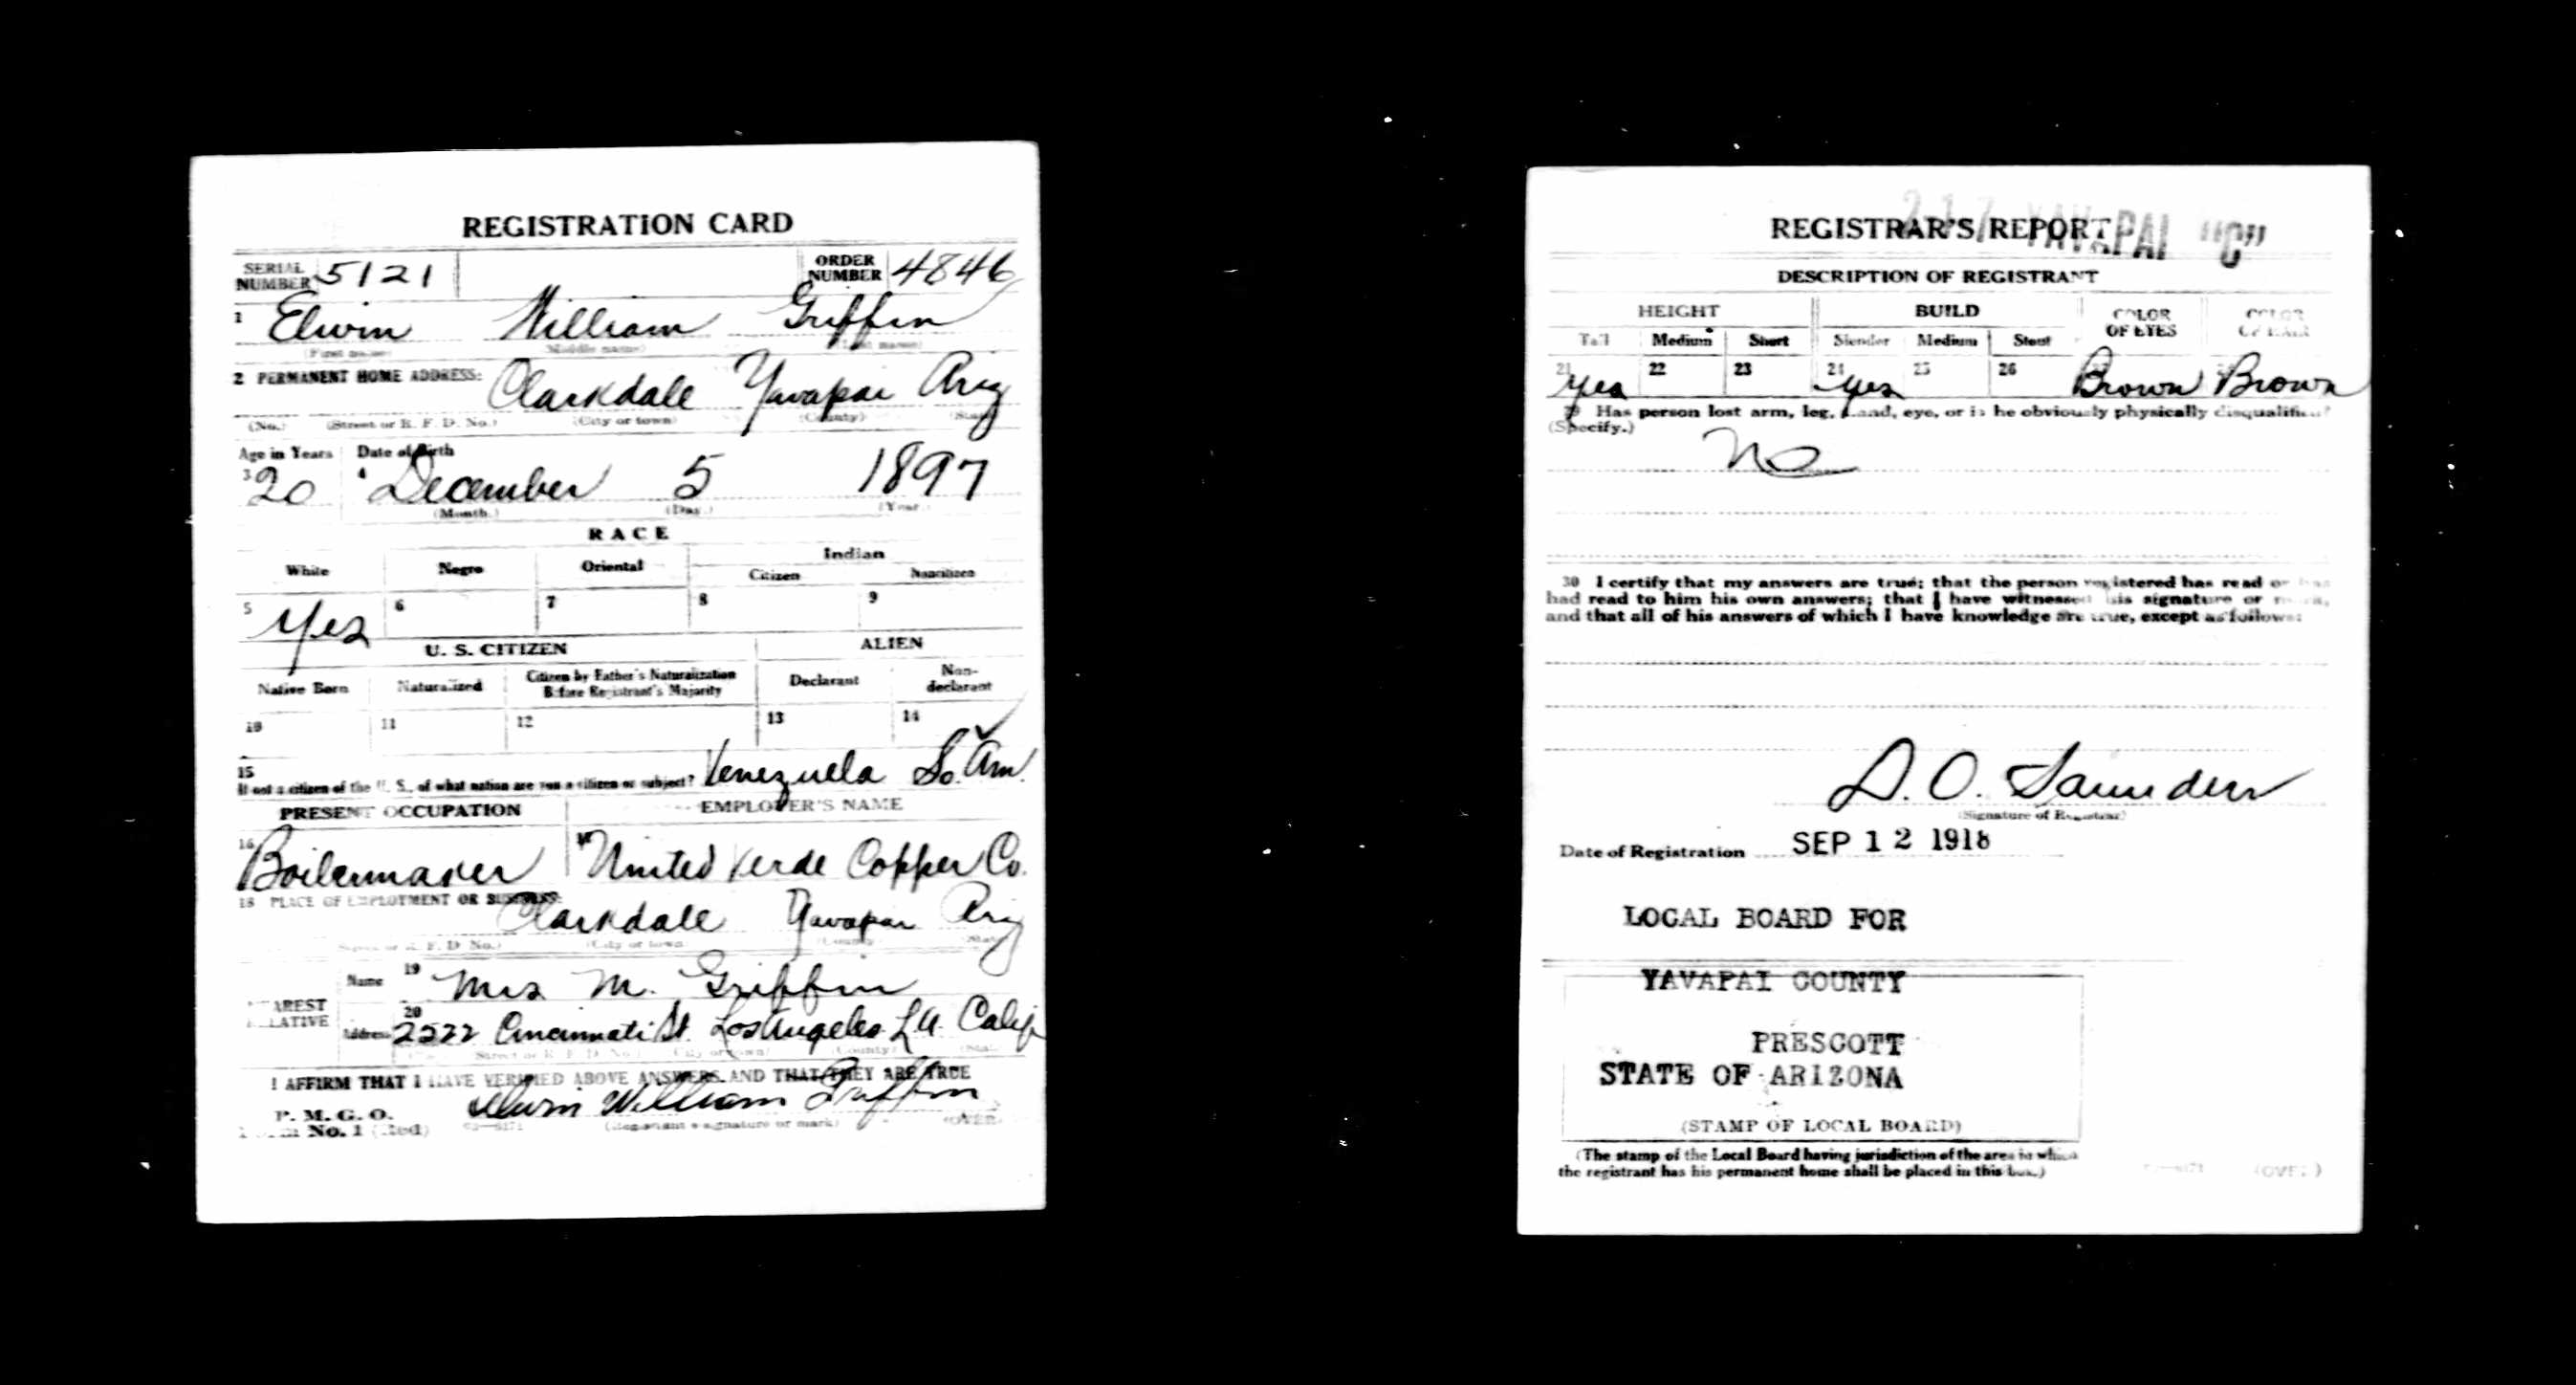 REGISTRATION CARD
SERIAL NUMBER 5121 ORDER NUMBER 4846
1 Elwin William Griffin
(First name) (Middle name) (Last name)
2 PERMANENT HOME ADDRESS: Clarkdale Yavapai Ariz
(No.) (Street or R. F. D. No.) (City or town) (County) (State)
Age in Years Date of Birth
3 20 4 December 5 1897
(Month.) (Day.) (Year.)
RACE
White Negro Oriental Indian
Citizen Noncitizen
5 Yes 6 7 8 9
U. S. CITIZEN ALIEN
Native Born Naturalized Citizen by Father's Naturalization Before Registrant's Majority Declarant Non-declarant
10 11 12 13 14 ✓
15 If not a citizen of the U. S., of what nation are you a citizen or subject? Venezuela So. Am.
PRESENT OCCUPATION EMPLOYER'S NAME
16 Boilermaker 17 United Verde Copper Co.
18 PLACE OF EMPLOYMENT OR BUSINESS: Clarkdale Yavapai Ariz
(Street or R. F. D. No.) (City or town) (County) (State)
Name 19 Mrs M. Griffin
NEAREST RELATIVE
Address 20 2522 Cincinnati St. Los Angeles L.A. Calif
I AFFIRM THAT I HAVE VERIFIED ABOVE ANSWERS AND THAT THEY ARE TRUE
P. M. G. O.
Form No. 1 (Red) Elwin William Griffin
(Registrant's signature or mark) (OVER)
REGISTRAR'S REPORT
YAVAPAI "C"
DESCRIPTION OF REGISTRANT
HEIGHT BUILD COLOR OF EYES COLOR OF HAIR
Tall Medium Short Slender Medium Stout
21 Yes 22 23 24 Yes 25 26 Brown Brown
29 Has person lost arm, leg, hand, eye, or is he obviously physically disqualified?
(Specify.)
No
30 I certify that my answers are true; that the person registered has read or has
had read to him his own answers; that I have witnessed his signature or mark,
and that all of his answers of which I have knowledge are true, except as follows:
D. O. Saunders
(Signature of Registrar)
Date of Registration SEP 12 1918
LOCAL BOARD FOR
YAVAPAI COUNTY
PRESCOTT
STATE OF ARIZONA
(STAMP OF LOCAL BOARD)
(The stamp of the Local Board having jurisdiction of the area in which
the registrant has his permanent home shall be placed in this box.)
(OVER)